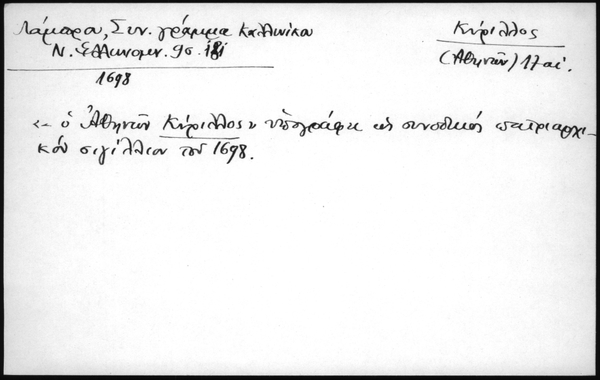 Λάμπρου, Συν. γράμμα Καλλινίκου
Ν. Ελληνομν. 9ος
1698
Κύριλλος
(Αθηνών) 17 αἰ.
«– ὁ Ἀθηνῶν Κύριλλος» ὑπογράφει ὡς συνοδικός πατριαρχι-
κόν σιγίλλιον τοῦ 1698.